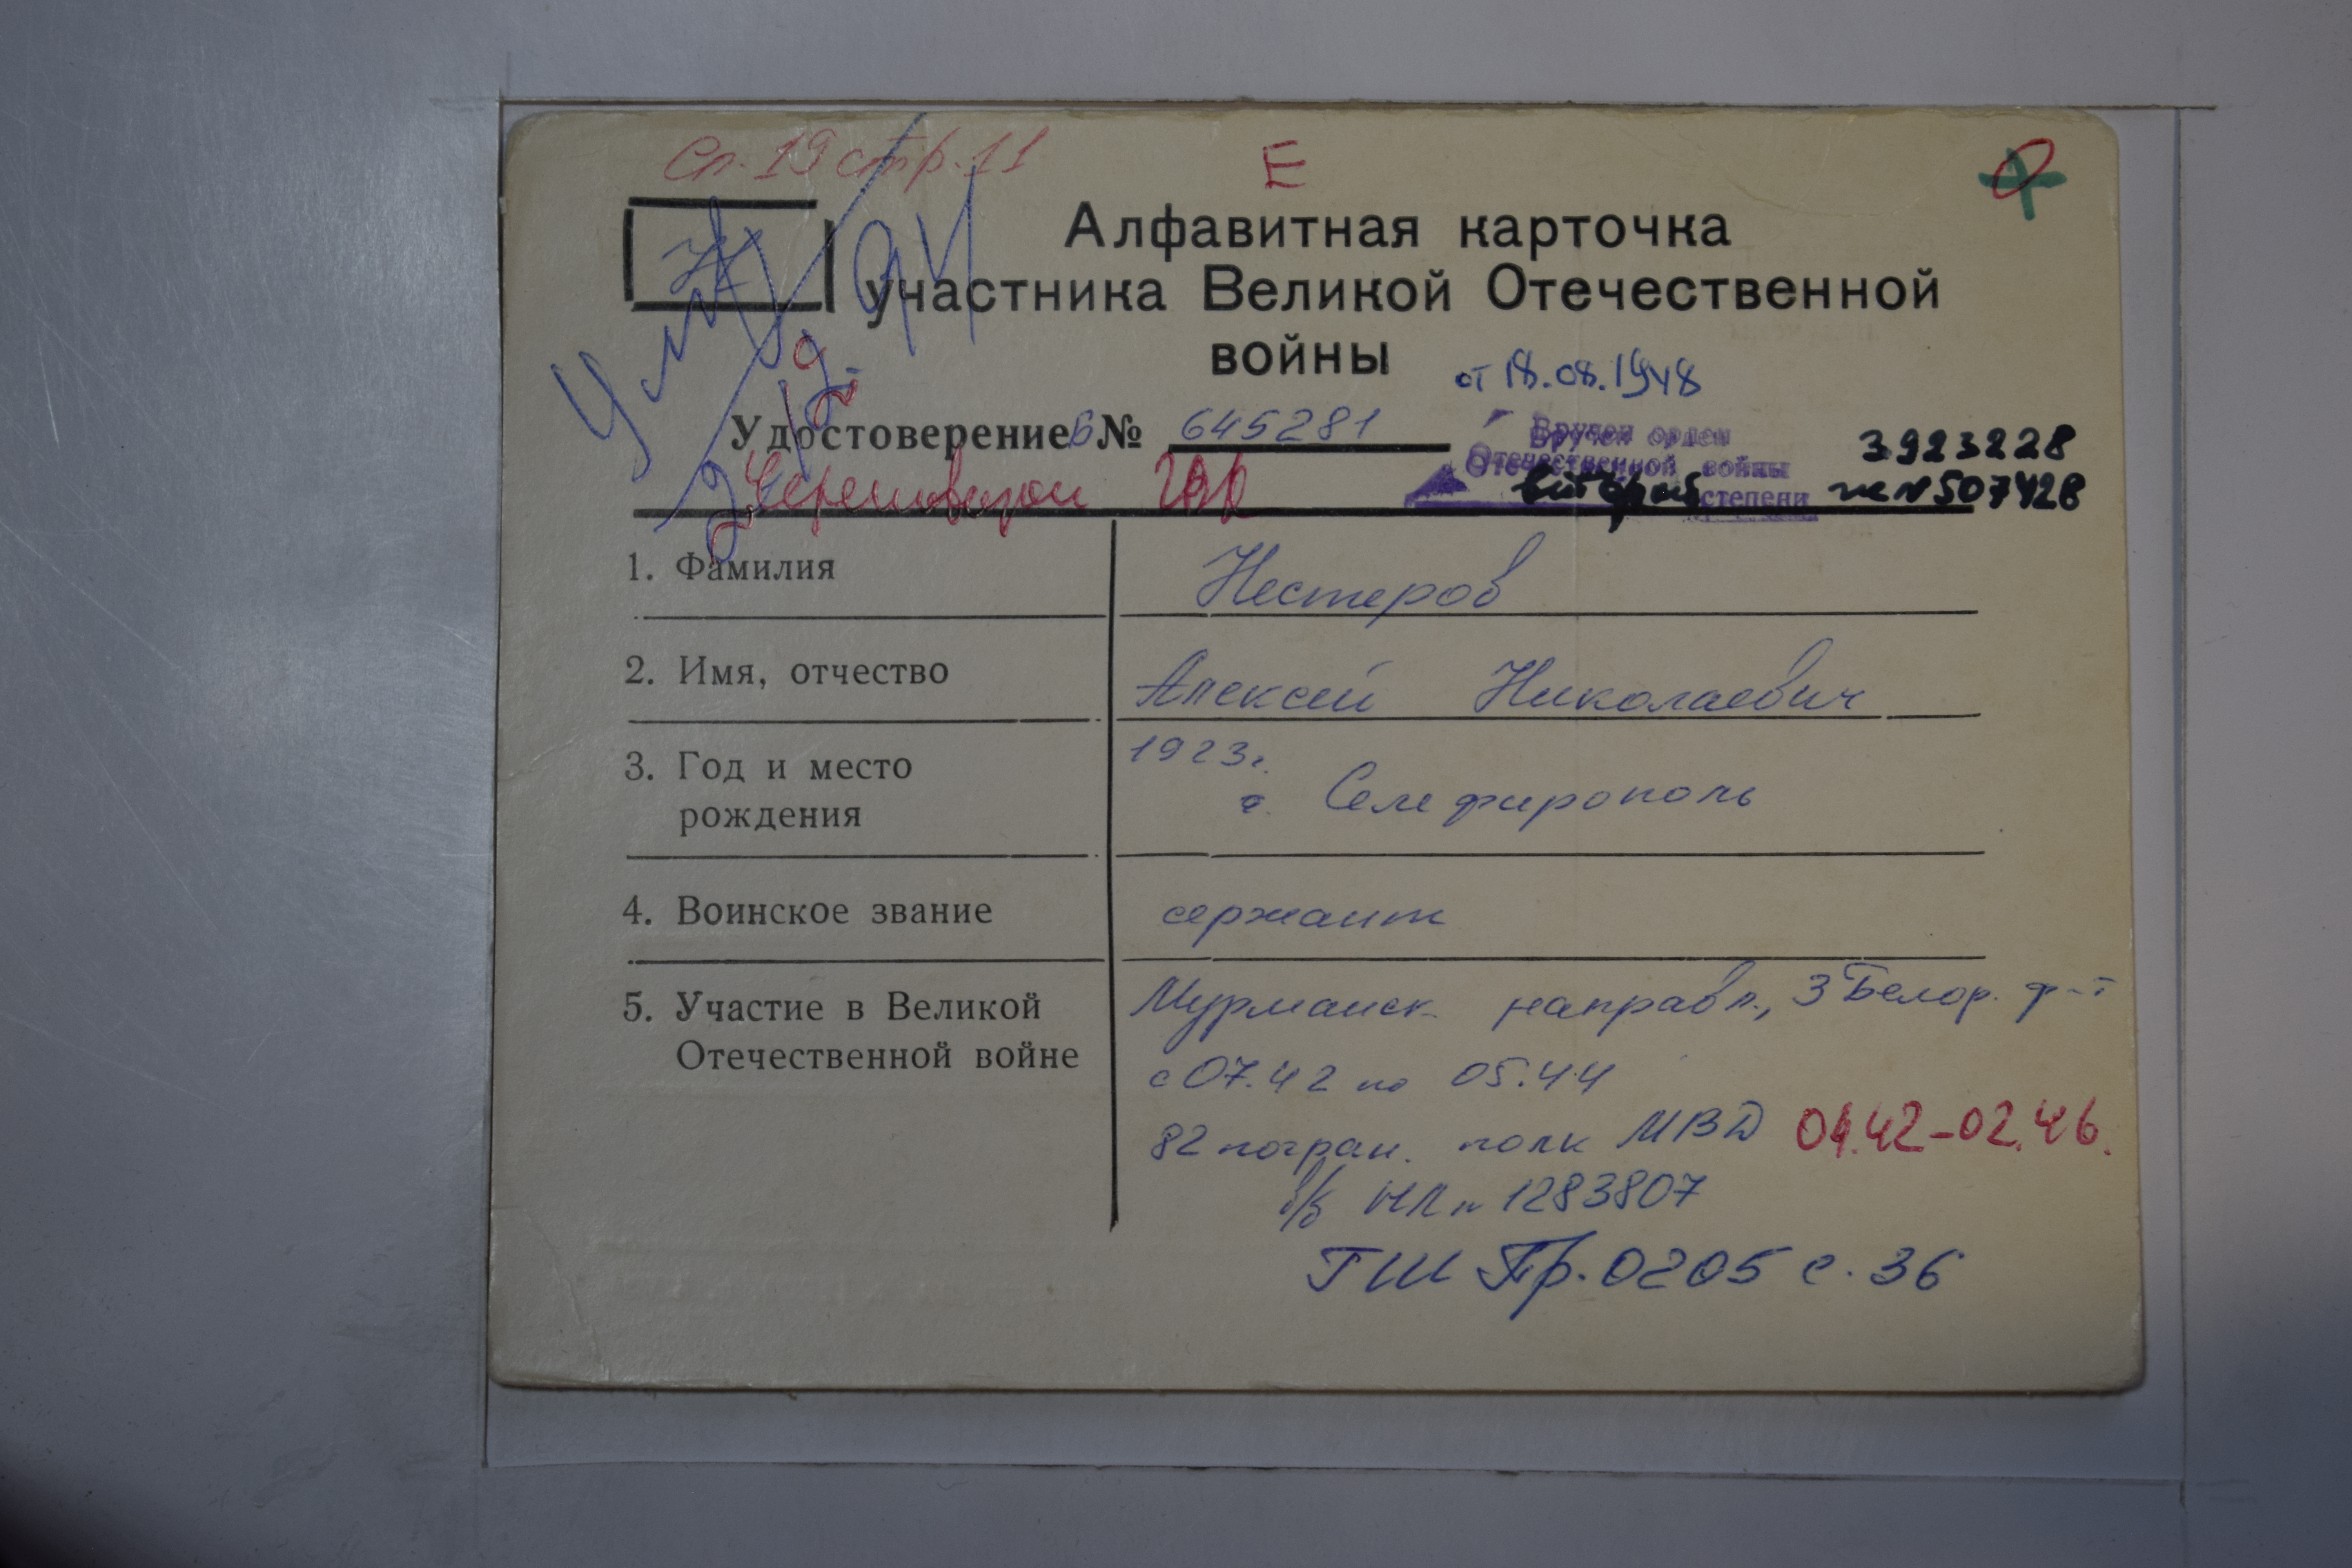 Сп. 19 стр. 11
Е
Алфавитная карточка
участника Великой Отечественной
войны
от 18.08.1948
Удостоверение Б № 645281
Вручен орден
Отечественной войны
второй степени
3923228
№ 507428
1. Фамилия
Нестеров
2. Имя, отчество
Алексей Николаевич
3. Год и место
рождения
1923г.
г. Семфирополь
4. Воинское звание
сержант
5. Участие в Великой
Отечественной войне
Мурманск. направл., 3 Белор. ф-т
с 07.42 по 05.44
82 погран. полк МВД 04.42-02.46.
в/б НЛ № 1283807
ГШ Пр. 0205 с. 36